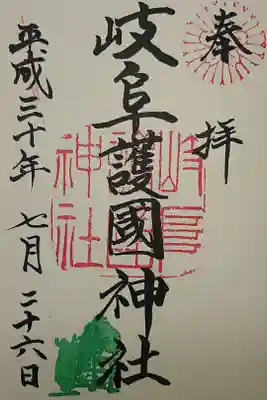 奉拝
岐阜護國神社
岐阜護國神社
平成三十年 七月 二十六日